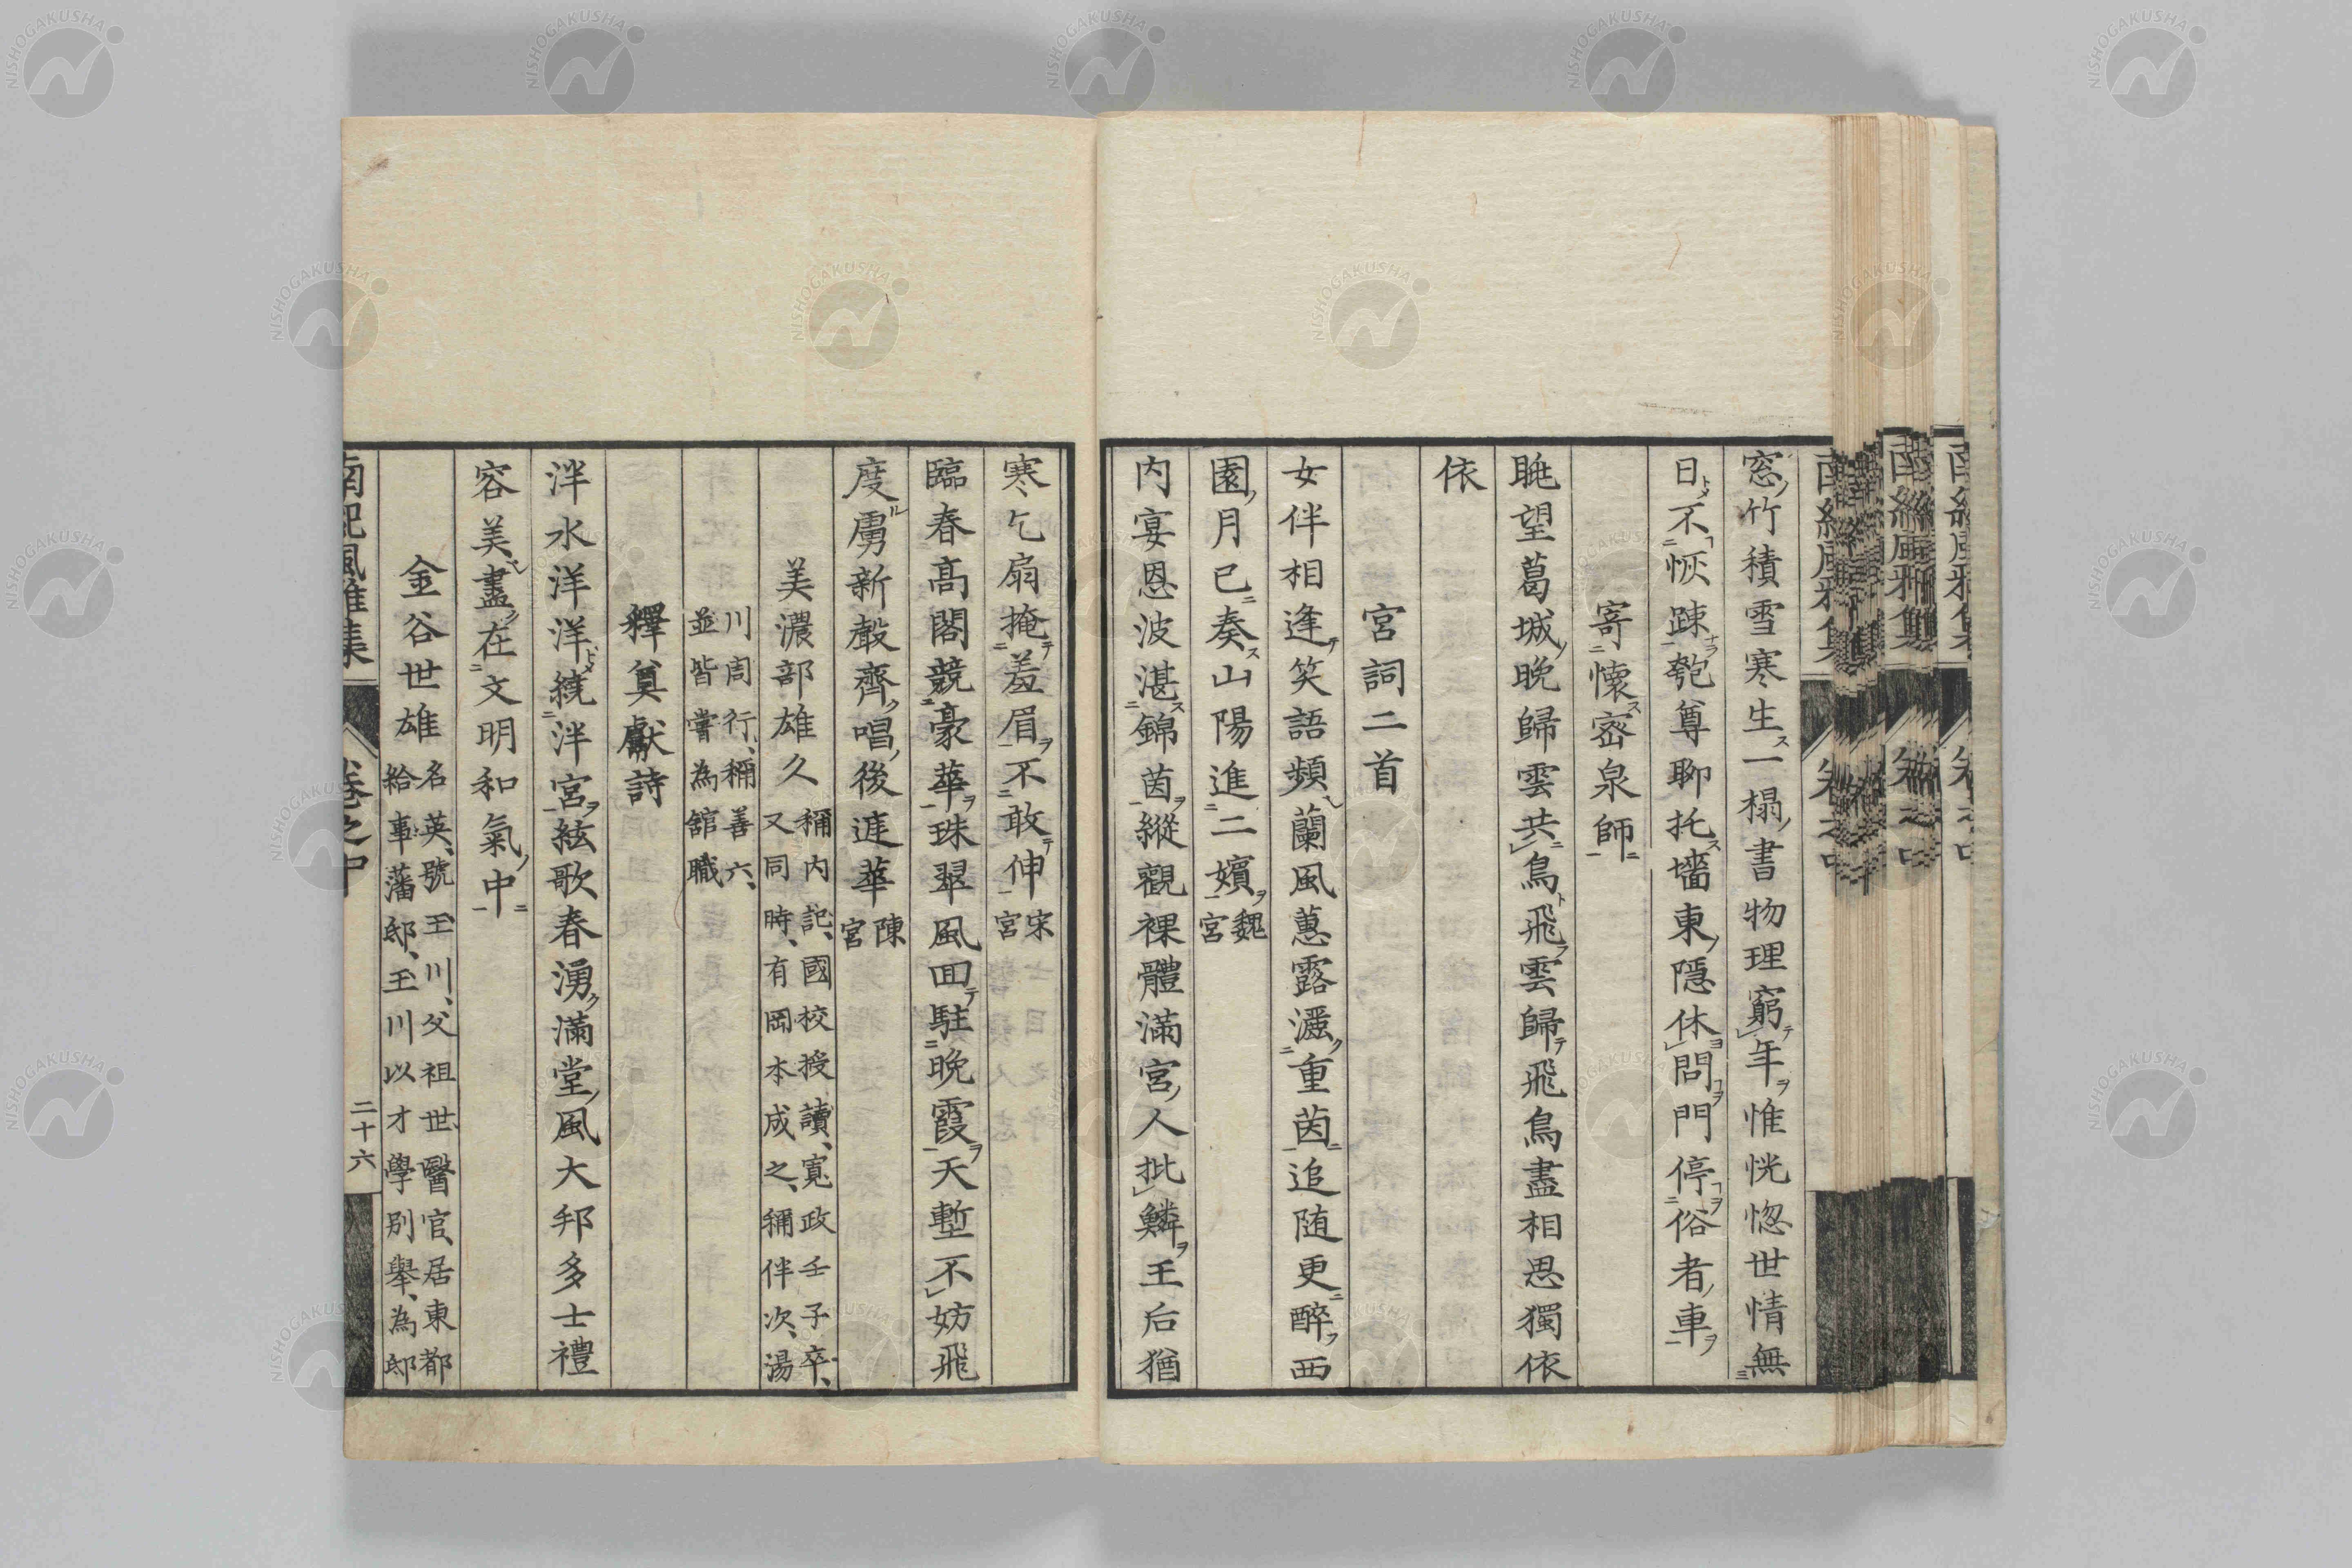 窓竹積雪寒生一榻書物理窮年惟恍惚世情無
日不恢疎匏尊聊托墻東隱休問門停俗者車
寄懷宻泉師
眺望葛城晚歸雲共鳥飛雲歸飛鳥盡相思獨依
依
宮詞二首
女伴相逢笑語頻蘭風蕙露濕重茵追随更醉西
園月已奏山陽進二嬪魏宮
内宴恩波湛錦茵縱觀裸體滿宮人批鱗王后猶
寒乞扇掩羞眉不敢伸宋宮
臨春高閣競豪華珠翠風回駐晚霞天塹不妨飛
度虜新聲齊唱後庭華陳宮
美濃部雄久稱内記、國校授讀、寬政壬子卒、
又同時、有岡本成之、稱伴次、湯
川周行、稱善六、
並皆嘗為舘職
釋奠獻詩
泮水洋洋繞泮宮絃歌春湧滿堂風大邦多士禮
容美盡在文明和氣中
金谷世雄名英、號玉川、父祖世醫官、居東都
給事藩邸、玉川以才學別舉、為邸
南紀風雅集 卷之中 二十六
NISHOGAKUSHA